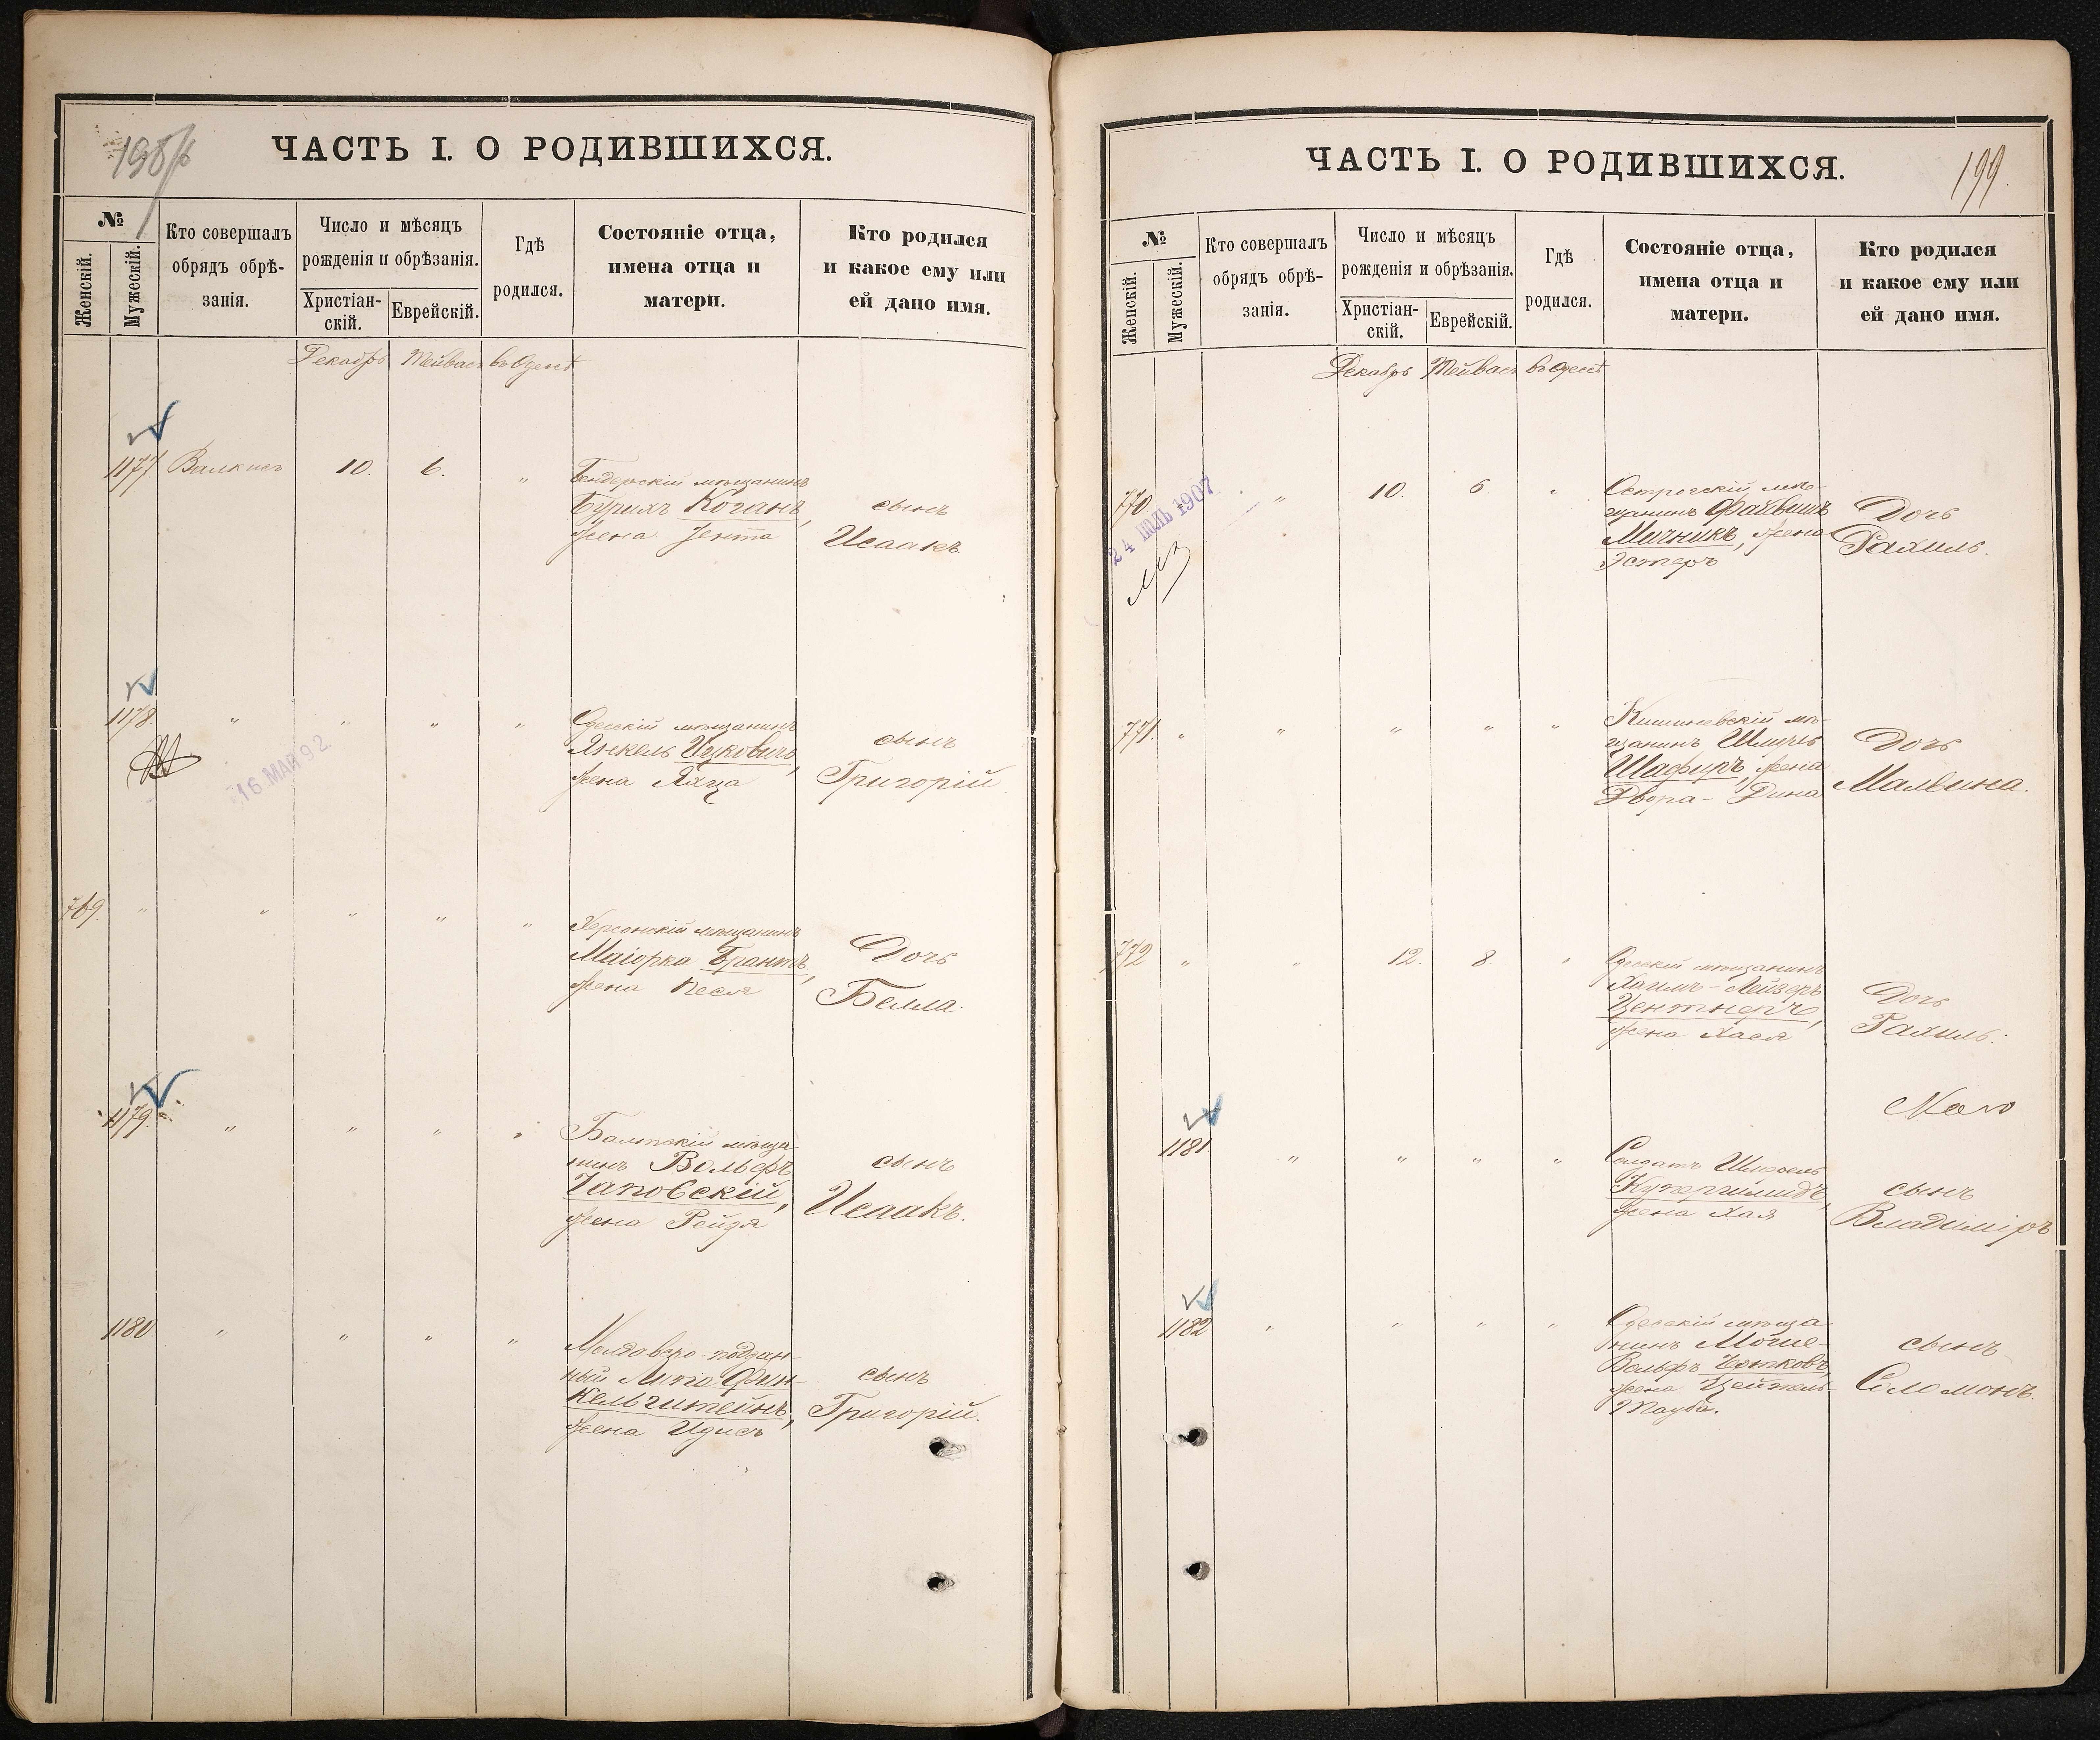 198/б
ЧАСТЬ I. О РОДИВШИХСЯ.
№
Женскій.
Мужескій.
Кто совершалъ
обрядъ обрѣ-
занія.
Число и мѣсяцъ
рожденія и обрѣзанія.
Христіан-
скій.
Еврейскій.
Гдѣ
родился.
Состояніе отца,
имена отца и
матери.
Кто родился
и какое ему или
ей дано имя.
Декабрь Тейвасъ въ Одессѣ
1177. 10. 6. "
Бендерскій мѣщанинъ
Коганъ,
жена Іента
сынъ
Исаакъ
1178. " " " "
16 МАЯ 92
Одесскій мѣщанинъ
Янкель Ицковичъ,
жена
сынъ
Григорій
769. " " " " "
Херсонскій мѣщанинъ
Маіорка Брантъ,
жена Песя
Дочь
Белла.
1179. " " " "
Балтскій мѣща-
нинъ Вольфъ
Чаповскій,
жена Рейзя
сынъ
Исаакъ.
1180 " " " "
Молдавско-поддан-
ный Липа Фин-
кельштейнъ,
жена Идисъ
сынъ
Григорій.
ЧАСТЬ I. О РОДИВШИХСЯ.
199.
№
Женскій.
Мужескій.
Кто совершалъ
обрядъ обрѣ-
занія.
Число и мѣсяцъ
рожденія и обрѣзанія.
Христіан-
скій.
Еврейскій.
Гдѣ
родился.
Состояніе отца,
имена отца и
матери.
Кто родился
и какое ему или
ей дано имя.
Декабрь Тейвасъ въ Одессѣ
770. " 10. 6 "
24 ІЮЛЬ 1907
Острогскій мѣ-
щанинъ Файвишъ
Мичникъ, жена
Эстеръ
Дочь
Рахиль.
771. " " " " "
Кишиневскій мѣ-
щанинъ Шмиль
Шафиръ, жена
Двора-Дина
Дочь
Мальвина.
772 " " 12. 8 "
Одесскій мѣщанинъ
Хаимъ-Лейзеръ
Центнеръ,
жена Хася
Дочь
Рахиль.
1181. " " " "
Солдатъ Шмоель
жена Хая
сынъ
Владиміръ
1182 " " " "
Одесскій мѣща-
нинъ
Вольфъ
жена Цейтель-
Тауба.
сынъ
Соломонъ.